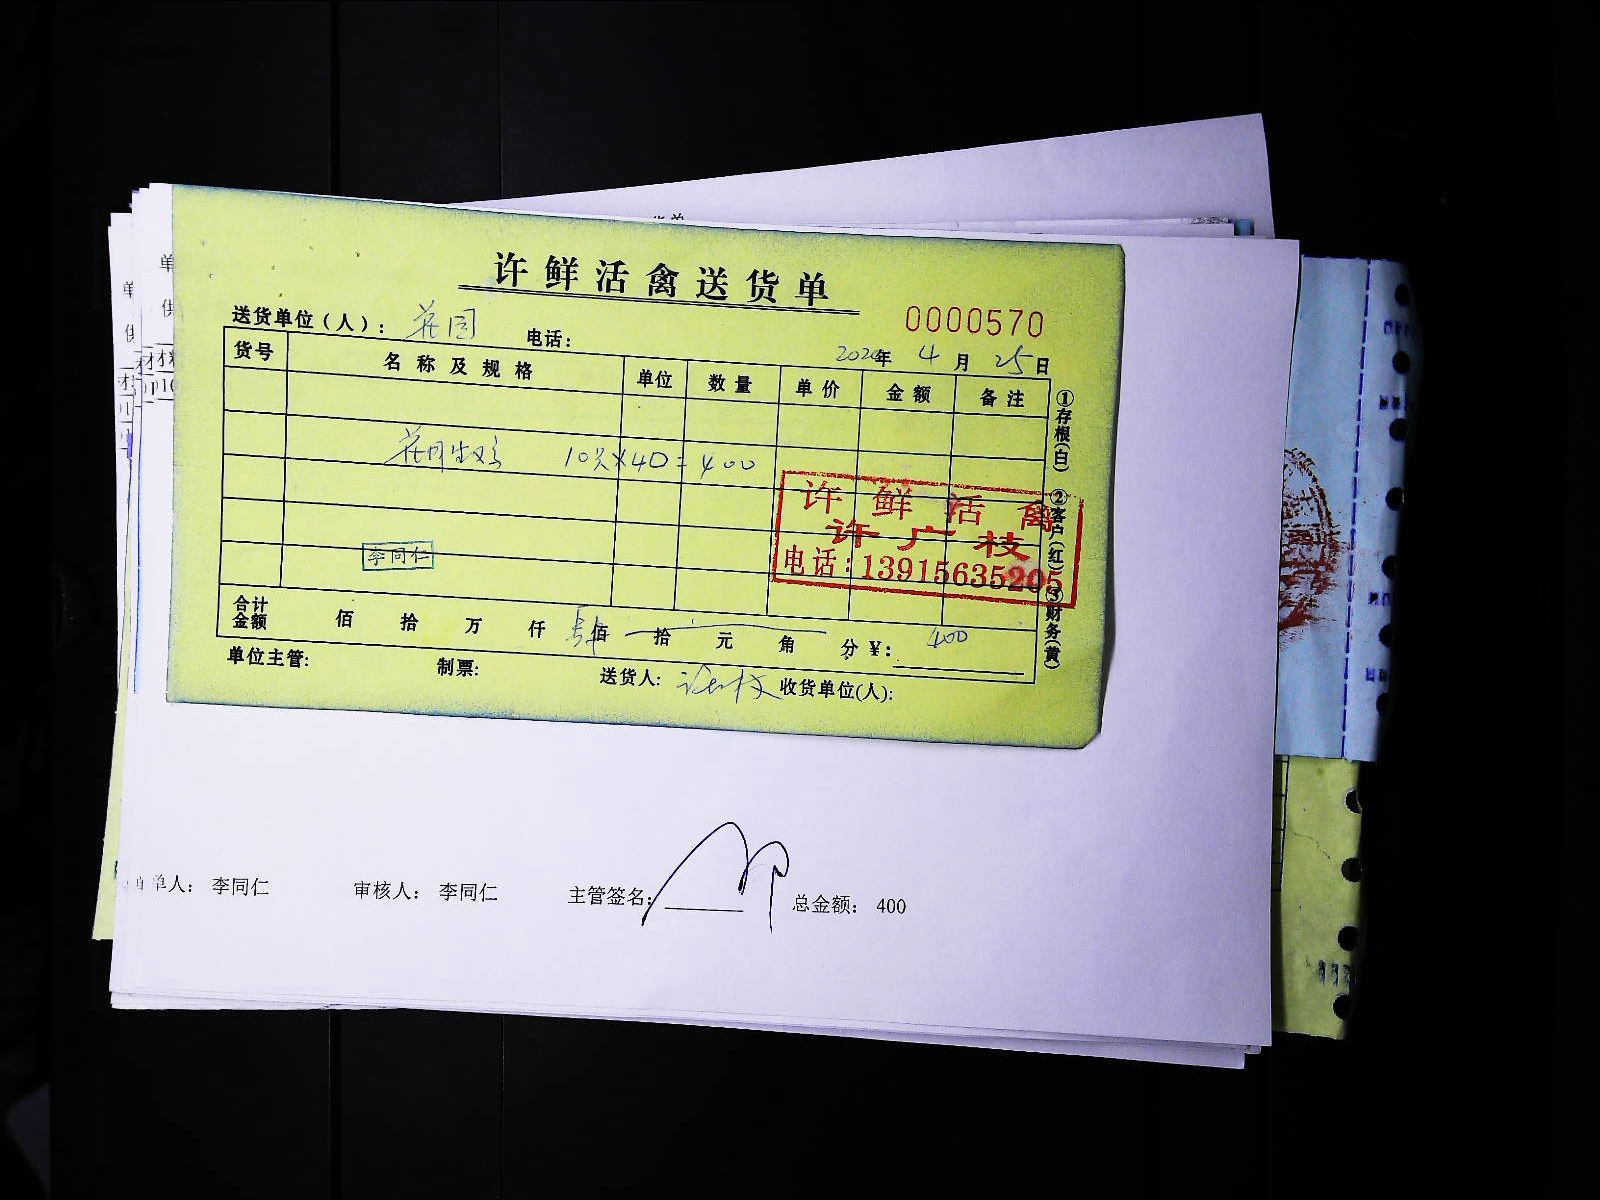 许鲜活禽送货单
0000570
送货单位(人): 花园 电话:
2020年 4月 25日
货号 名称及规格 单位 数量 单价 金额 备注
10只×40=400
许鲜活禽
许广枝
电话:13915635205
李同仁
合计金额 佰 拾 万 仟 肆佰 拾 元 角 分 ¥: 400
单位主管: 制票: 送货人: 收货单位(人):
①存根(白) ②客户(红) ③财务(黄)
单人: 李同仁 审核人: 李同仁 主管签名: 总金额: 400